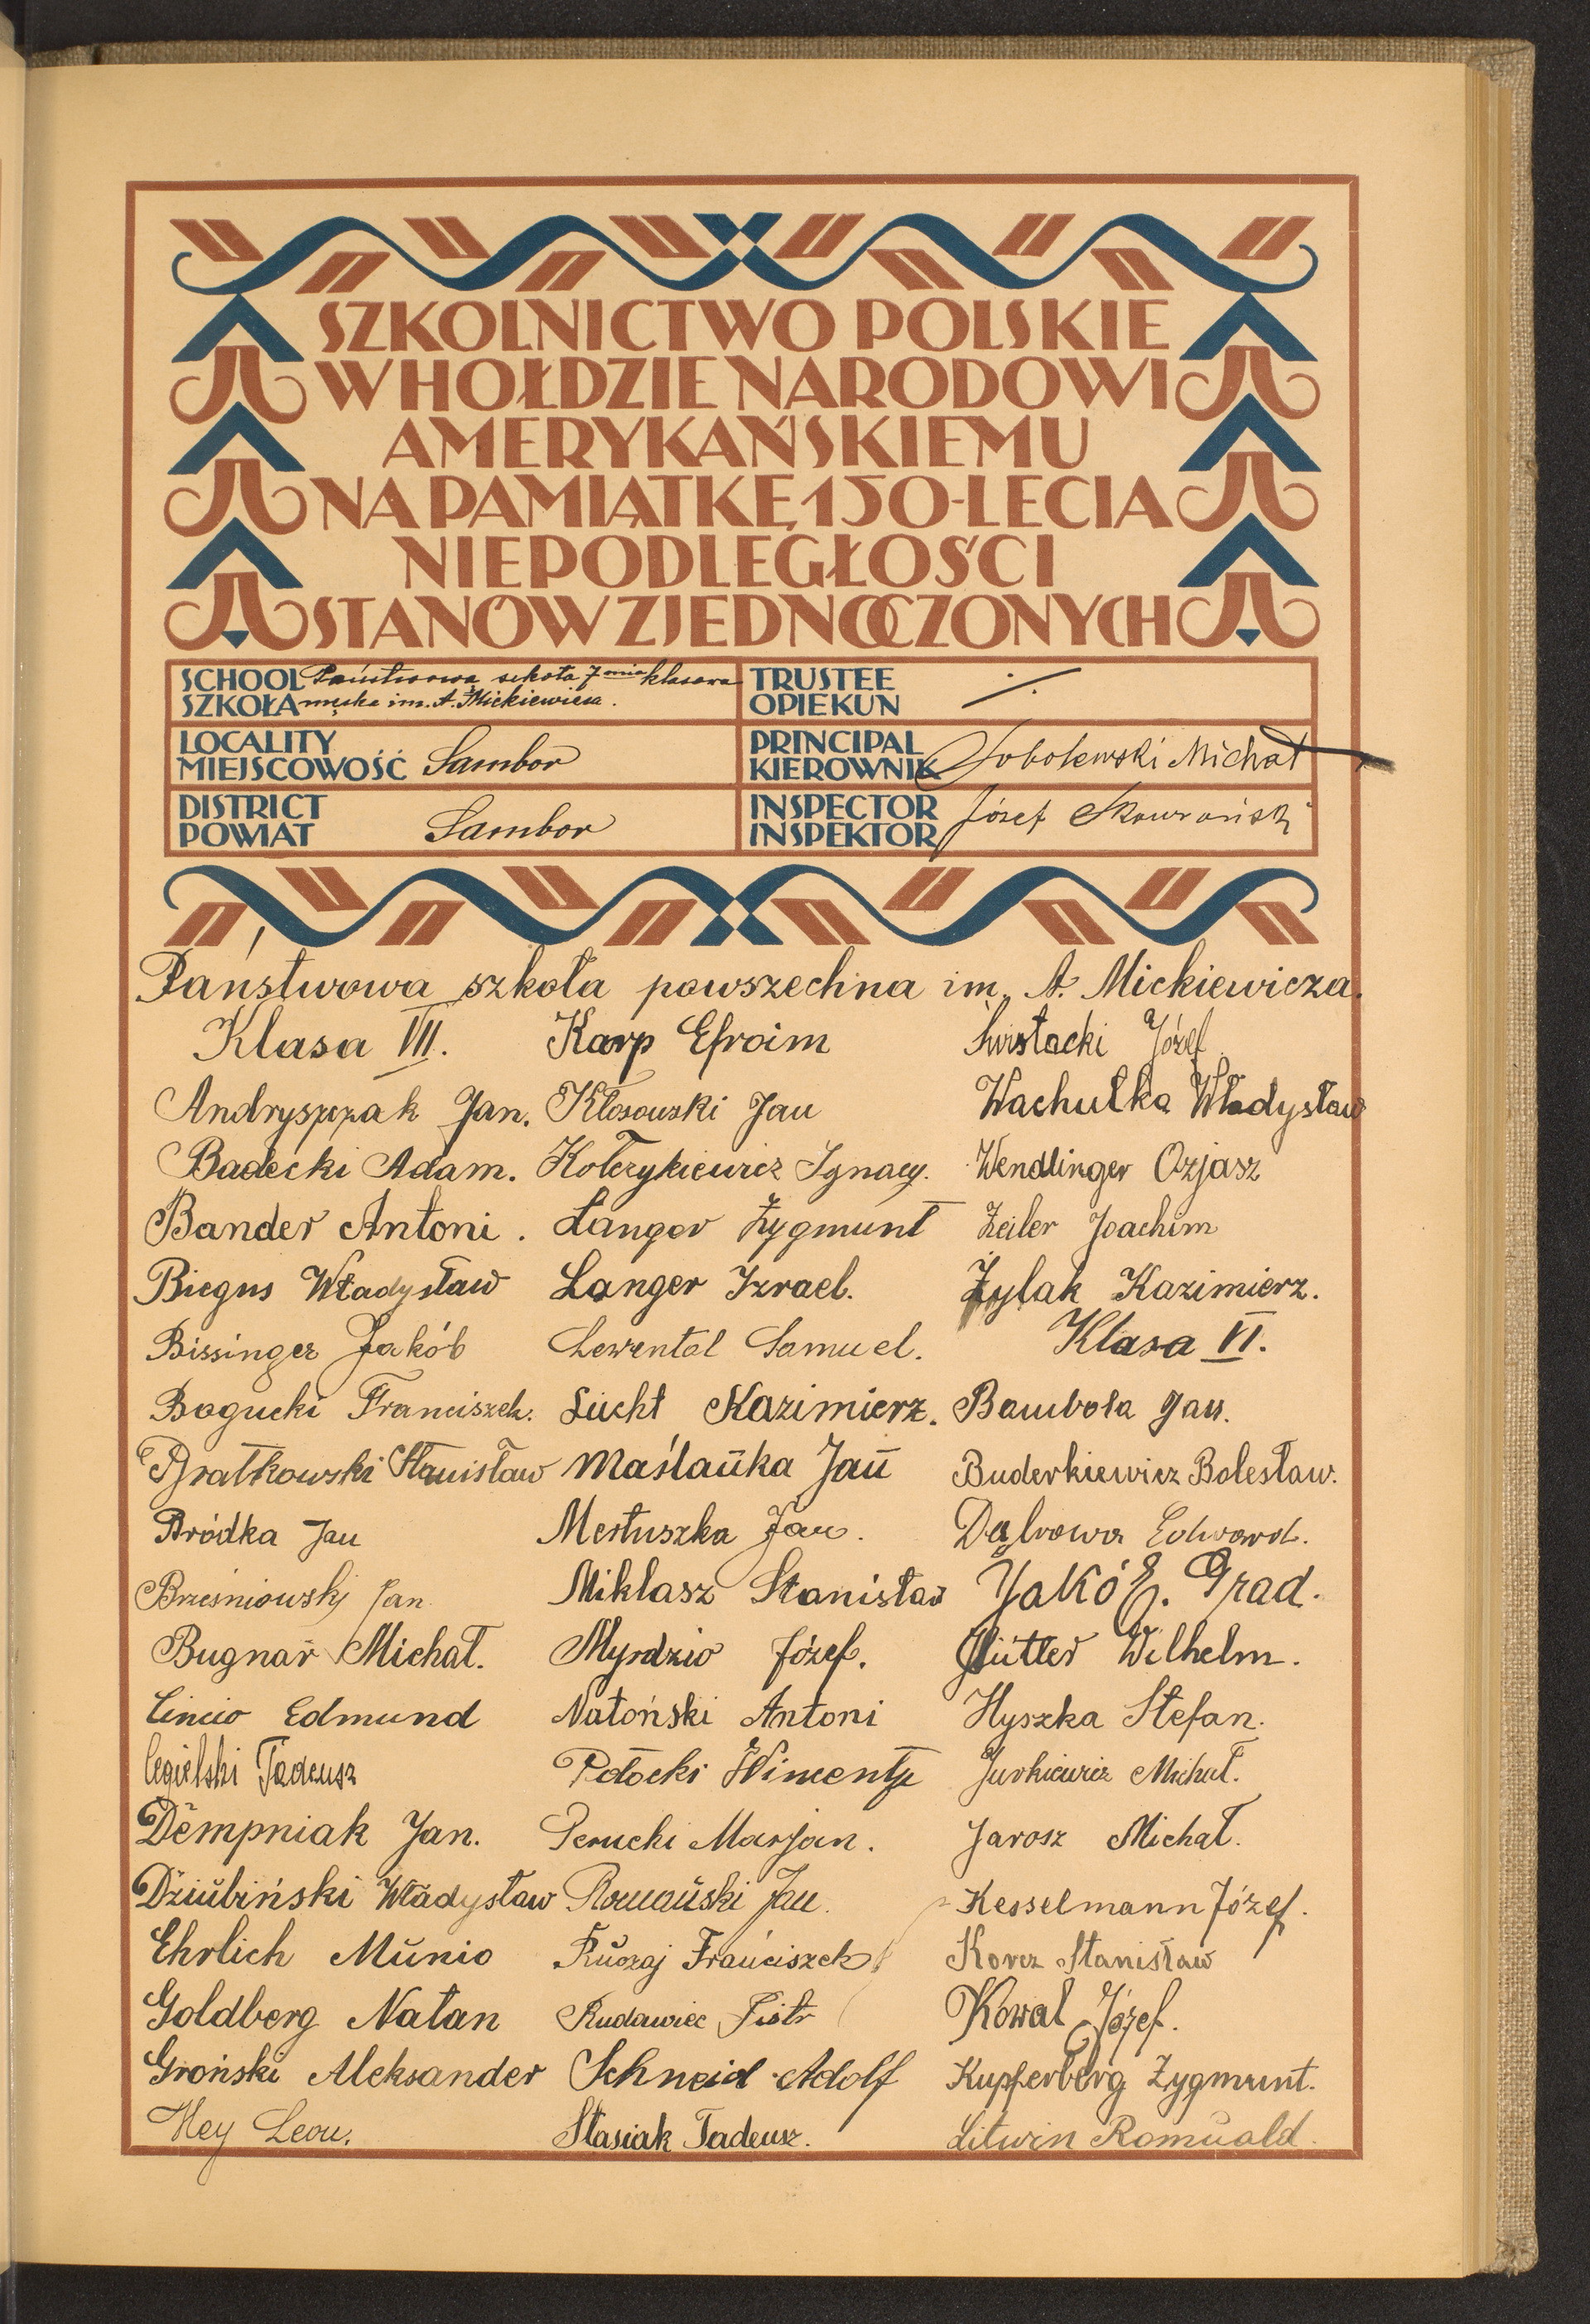 SZKOLNICTWO POLSKIE
W HOŁDZIE NARODOWI
AMERYKAŃSKIEMU
NA PAMIĄTKĘ 150-LECIA
NIEPODLEGŁOŚCI
STANÓW ZJEDNOCZONYCH
SCHOOL Państwowa szkoła 7mio klasowa
SZKOŁA męska im. A. Mickiewicza.
TRUSTEE
OPIEKUN
LOCALITY
MIEJSCOWOŚĆ Sambor
PRINCIPAL
KIEROWNIK Sobolewski Michał
DISTRICT
POWIAT Sambor
INSPECTOR
INSPEKTOR Józef Skowroński
Państwowa szkoła powszechna im. A. Mickiewicza.
Klasa VII.
Andryszczak Jan.
Badecki Adam.
Bander Antoni.
Biegus Władysław
Bissinger Jakób
Bogucki Franciszek.
Bratkowski Stanisław
Bródka Jan
Brześniowski Jan
Bugnar Michał.
Cincio Edmund
Cegielski Tadeusz
Dempniak Jan.
Dziubiński Władysław
Ehrlich Munio
Goldberg Natan
Groński Aleksander
Hey Leon.
Karp Efroim
Kłosowski Jan
Kołczykiewicz Ignacy.
Langer Zygmunt
Langer Izrael.
Lewental Samuel.
Lucht Kazimierz.
Maślanka Jan
Mertuszka Jan.
Miklasz Stanisław
Myrdzio Józef.
Natoński Antoni
Potocki Wincenty
Perucki Marjan.
Romański Jan.
Ruczaj Franciszek
Rudawiec Piotr
Schneid Adolf
Stasiak Tadeusz.
Świstacki Józef
Wachułka Władysław
Wendlinger Ozjasz
Zeiler Joachim
Żylak Kazimierz.
Klasa VI.
Bambola Jan.
Buderkiewicz Bolesław.
Dąbrowa Edward.
Jakób. Grad.
Hütter Wilhelm.
Hyszka Stefan.
Jurkiewicz Michał.
Jarosz Michał.
Kesselmann Józef.
Korcz Stanisław
Kowal Józef.
Kupferberg Zygmunt.
Litwin Romuald.